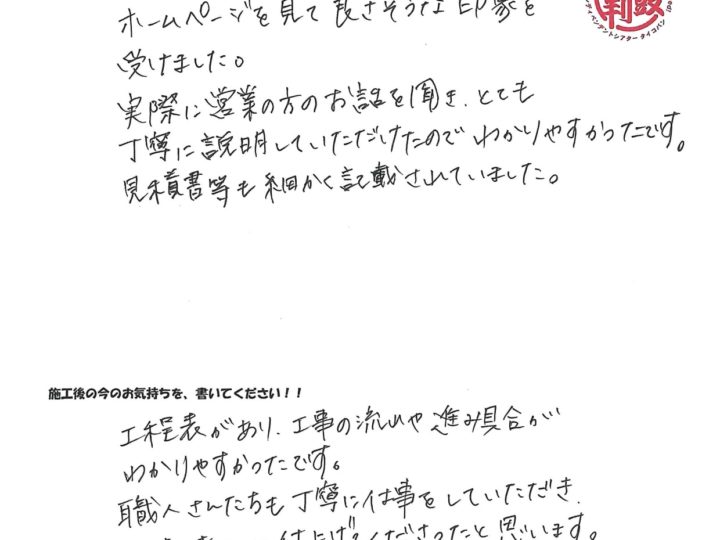 ホームページを見て良さそうな印象を
受けました。
実際に営業の方のお話を聞き、とても
丁寧に説明していただけたのでわかりやすかったです。
見積書等も細かく記載されていました。
施工後の今のお気持ちを、書いてください！！
工程表があり、工事の流れや進み具合が
わかりやすかったです。
職人さんたちも丁寧に仕事をしていただき、
仕上げてくださったと思います。